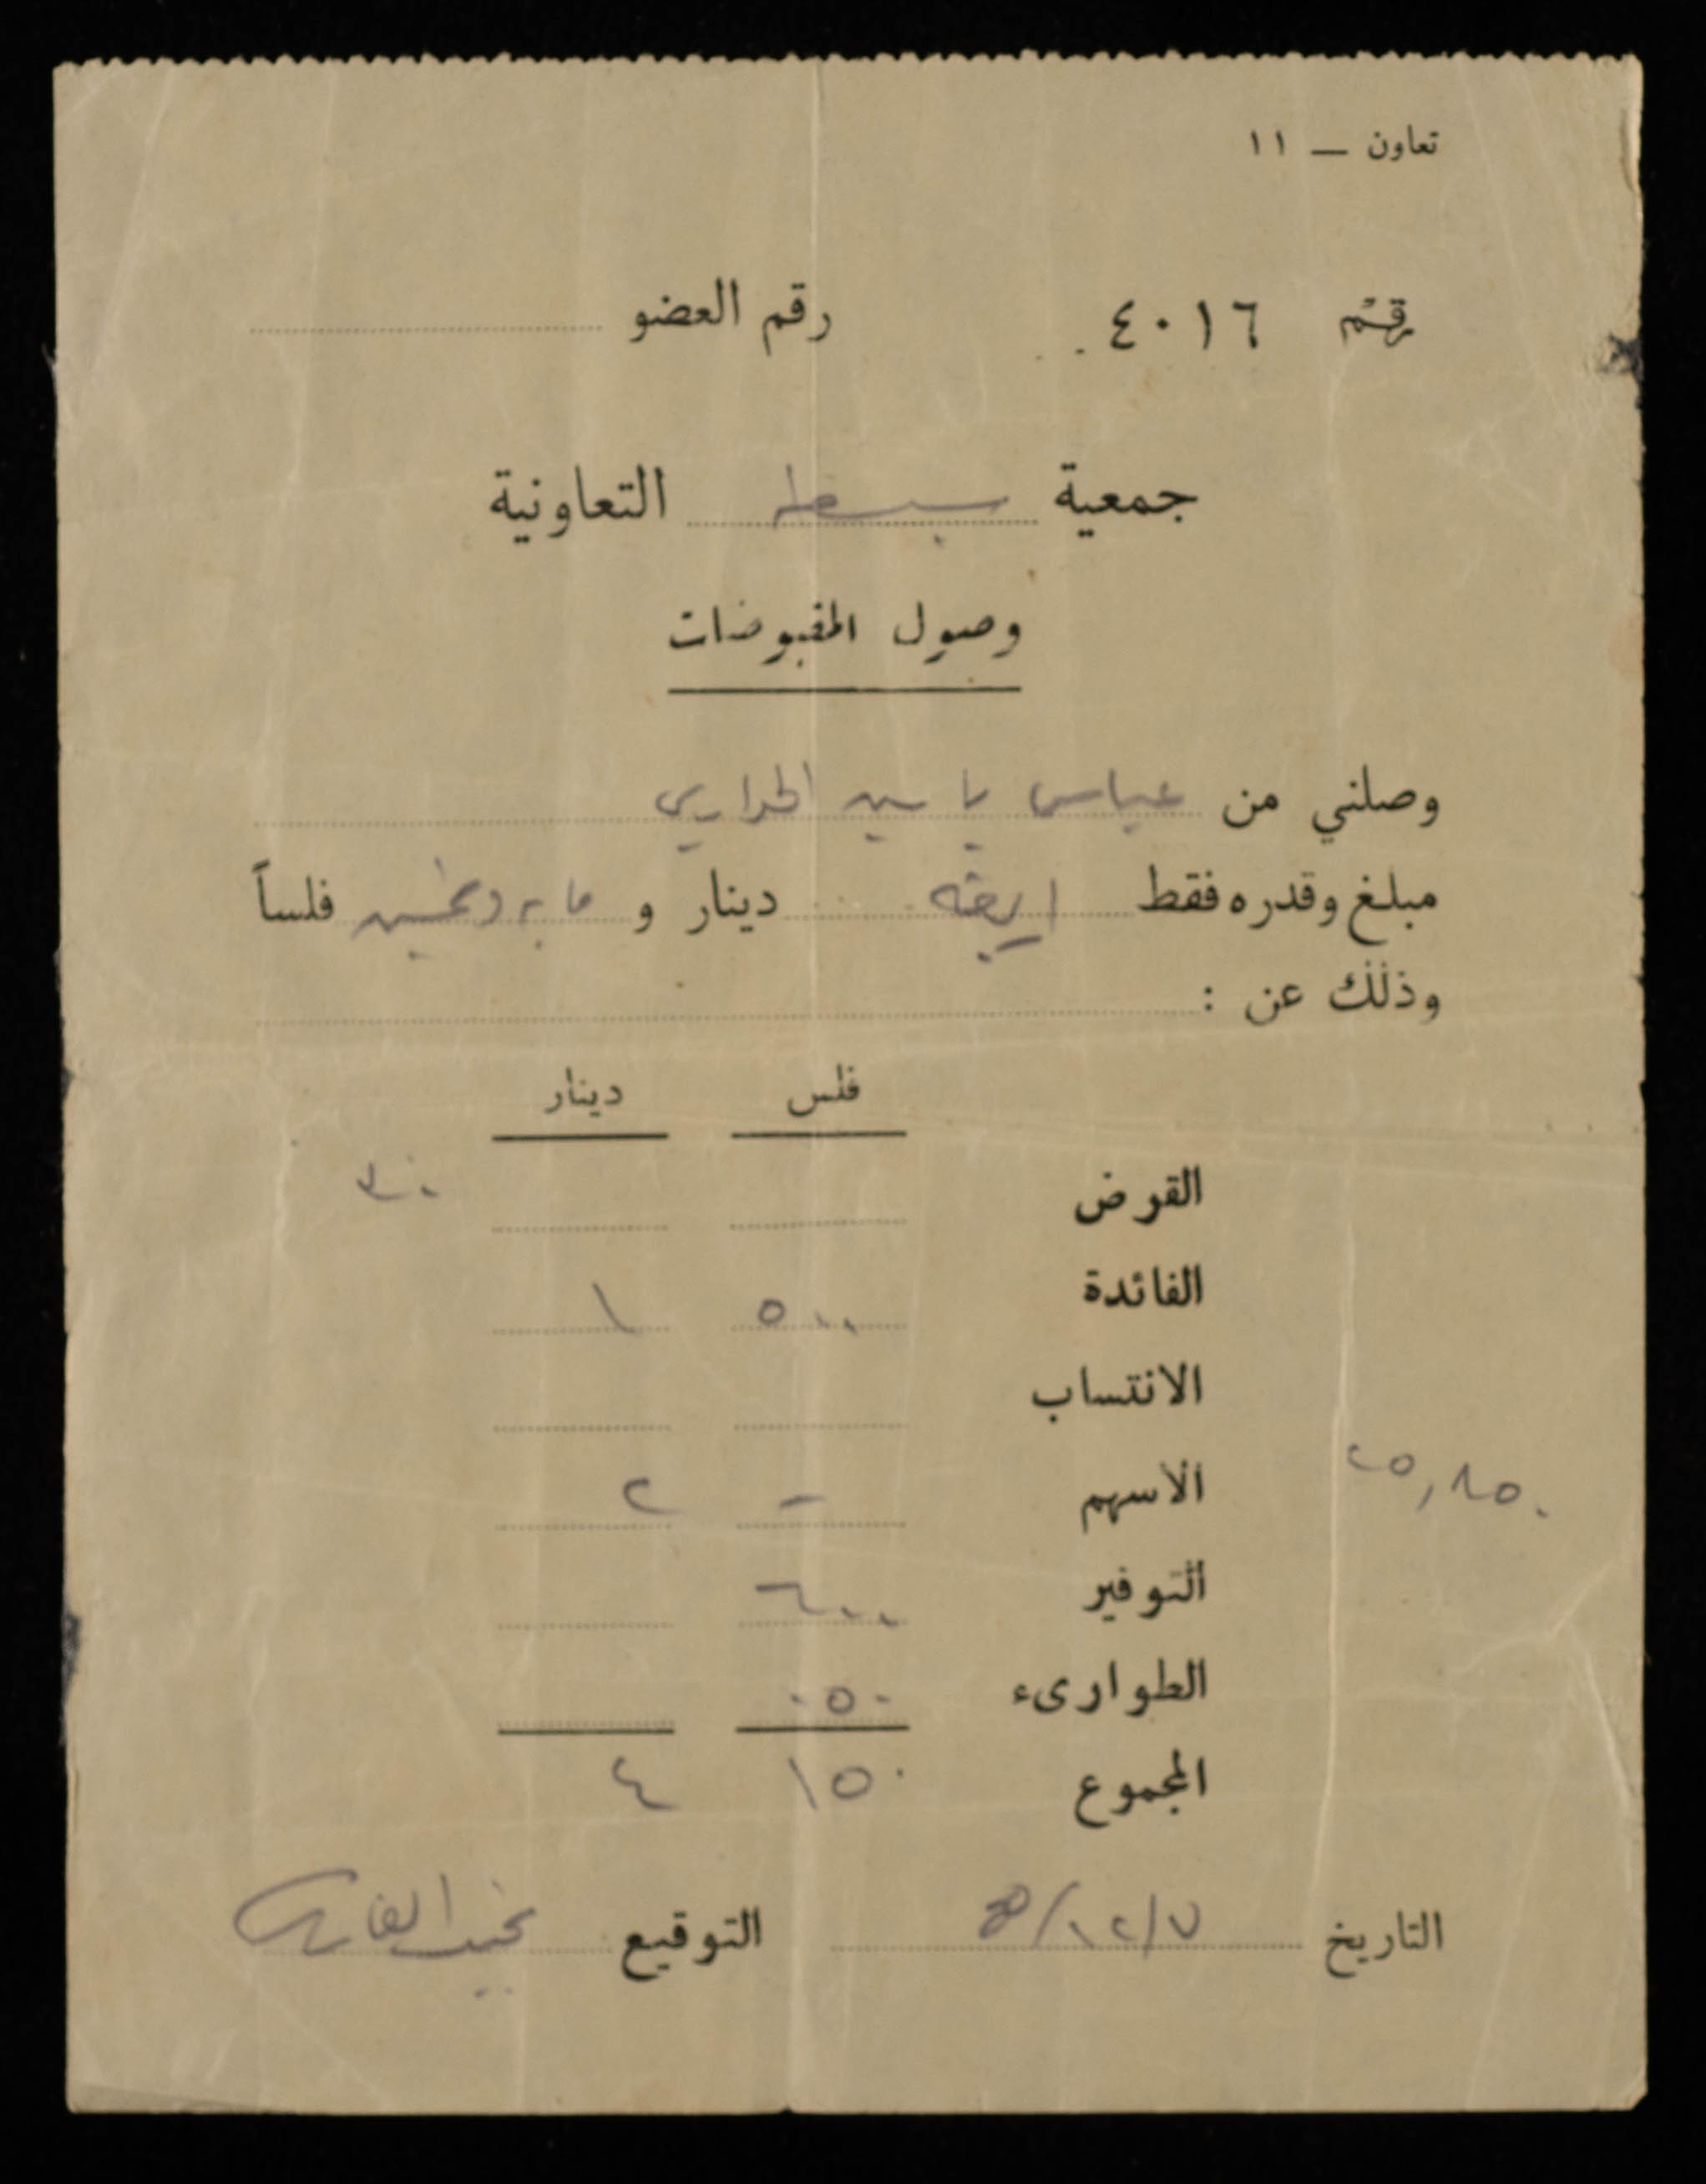 تعاون — ١١
رقم ٤٠١٦
رقم العضو
جمعية سبسطية التعاونية
وصول المقبوضات
وصلني من عباس ياسين الحواري
مبلغ وقدره فقط اربعة دينار و مايه وخمسين فلساً
وذلك عن :
فلس دينار
القرض ٣٠
الفائدة ٥٠٠ ١
الانتساب
الاسهم - ٢
٢٥,٨٥٠
التوفير ٦٠٠
الطوارىء ٠٥٠
المجموع ١٥٠ ٤
التاريخ ٧/١٢/
التوقيع نجيب